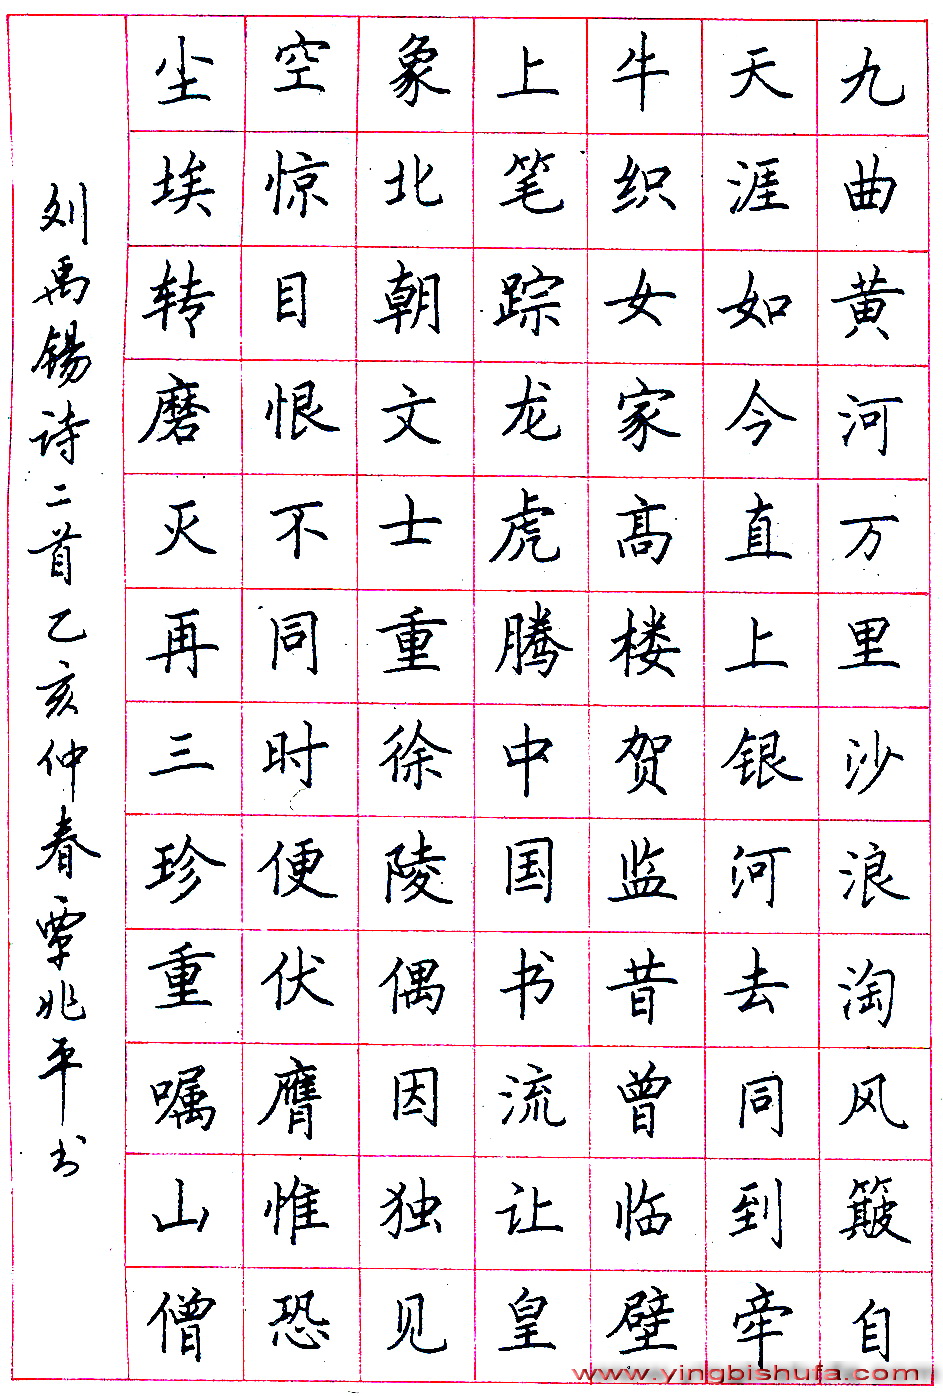 九曲黄河万里沙浪淘风簸自
天涯如今直上银河去同到牵
牛织女家高楼贺监昔曾临壁
上笔踪龙虎腾中国书流让皇
象北朝文士重徐陵偶因独见
空惊目恨不同时便伏膺惟恐
尘埃转磨灭再三珍重嘱山僧
刘禹锡诗二首乙亥仲春覃兆平书
www.yingbishufa.com